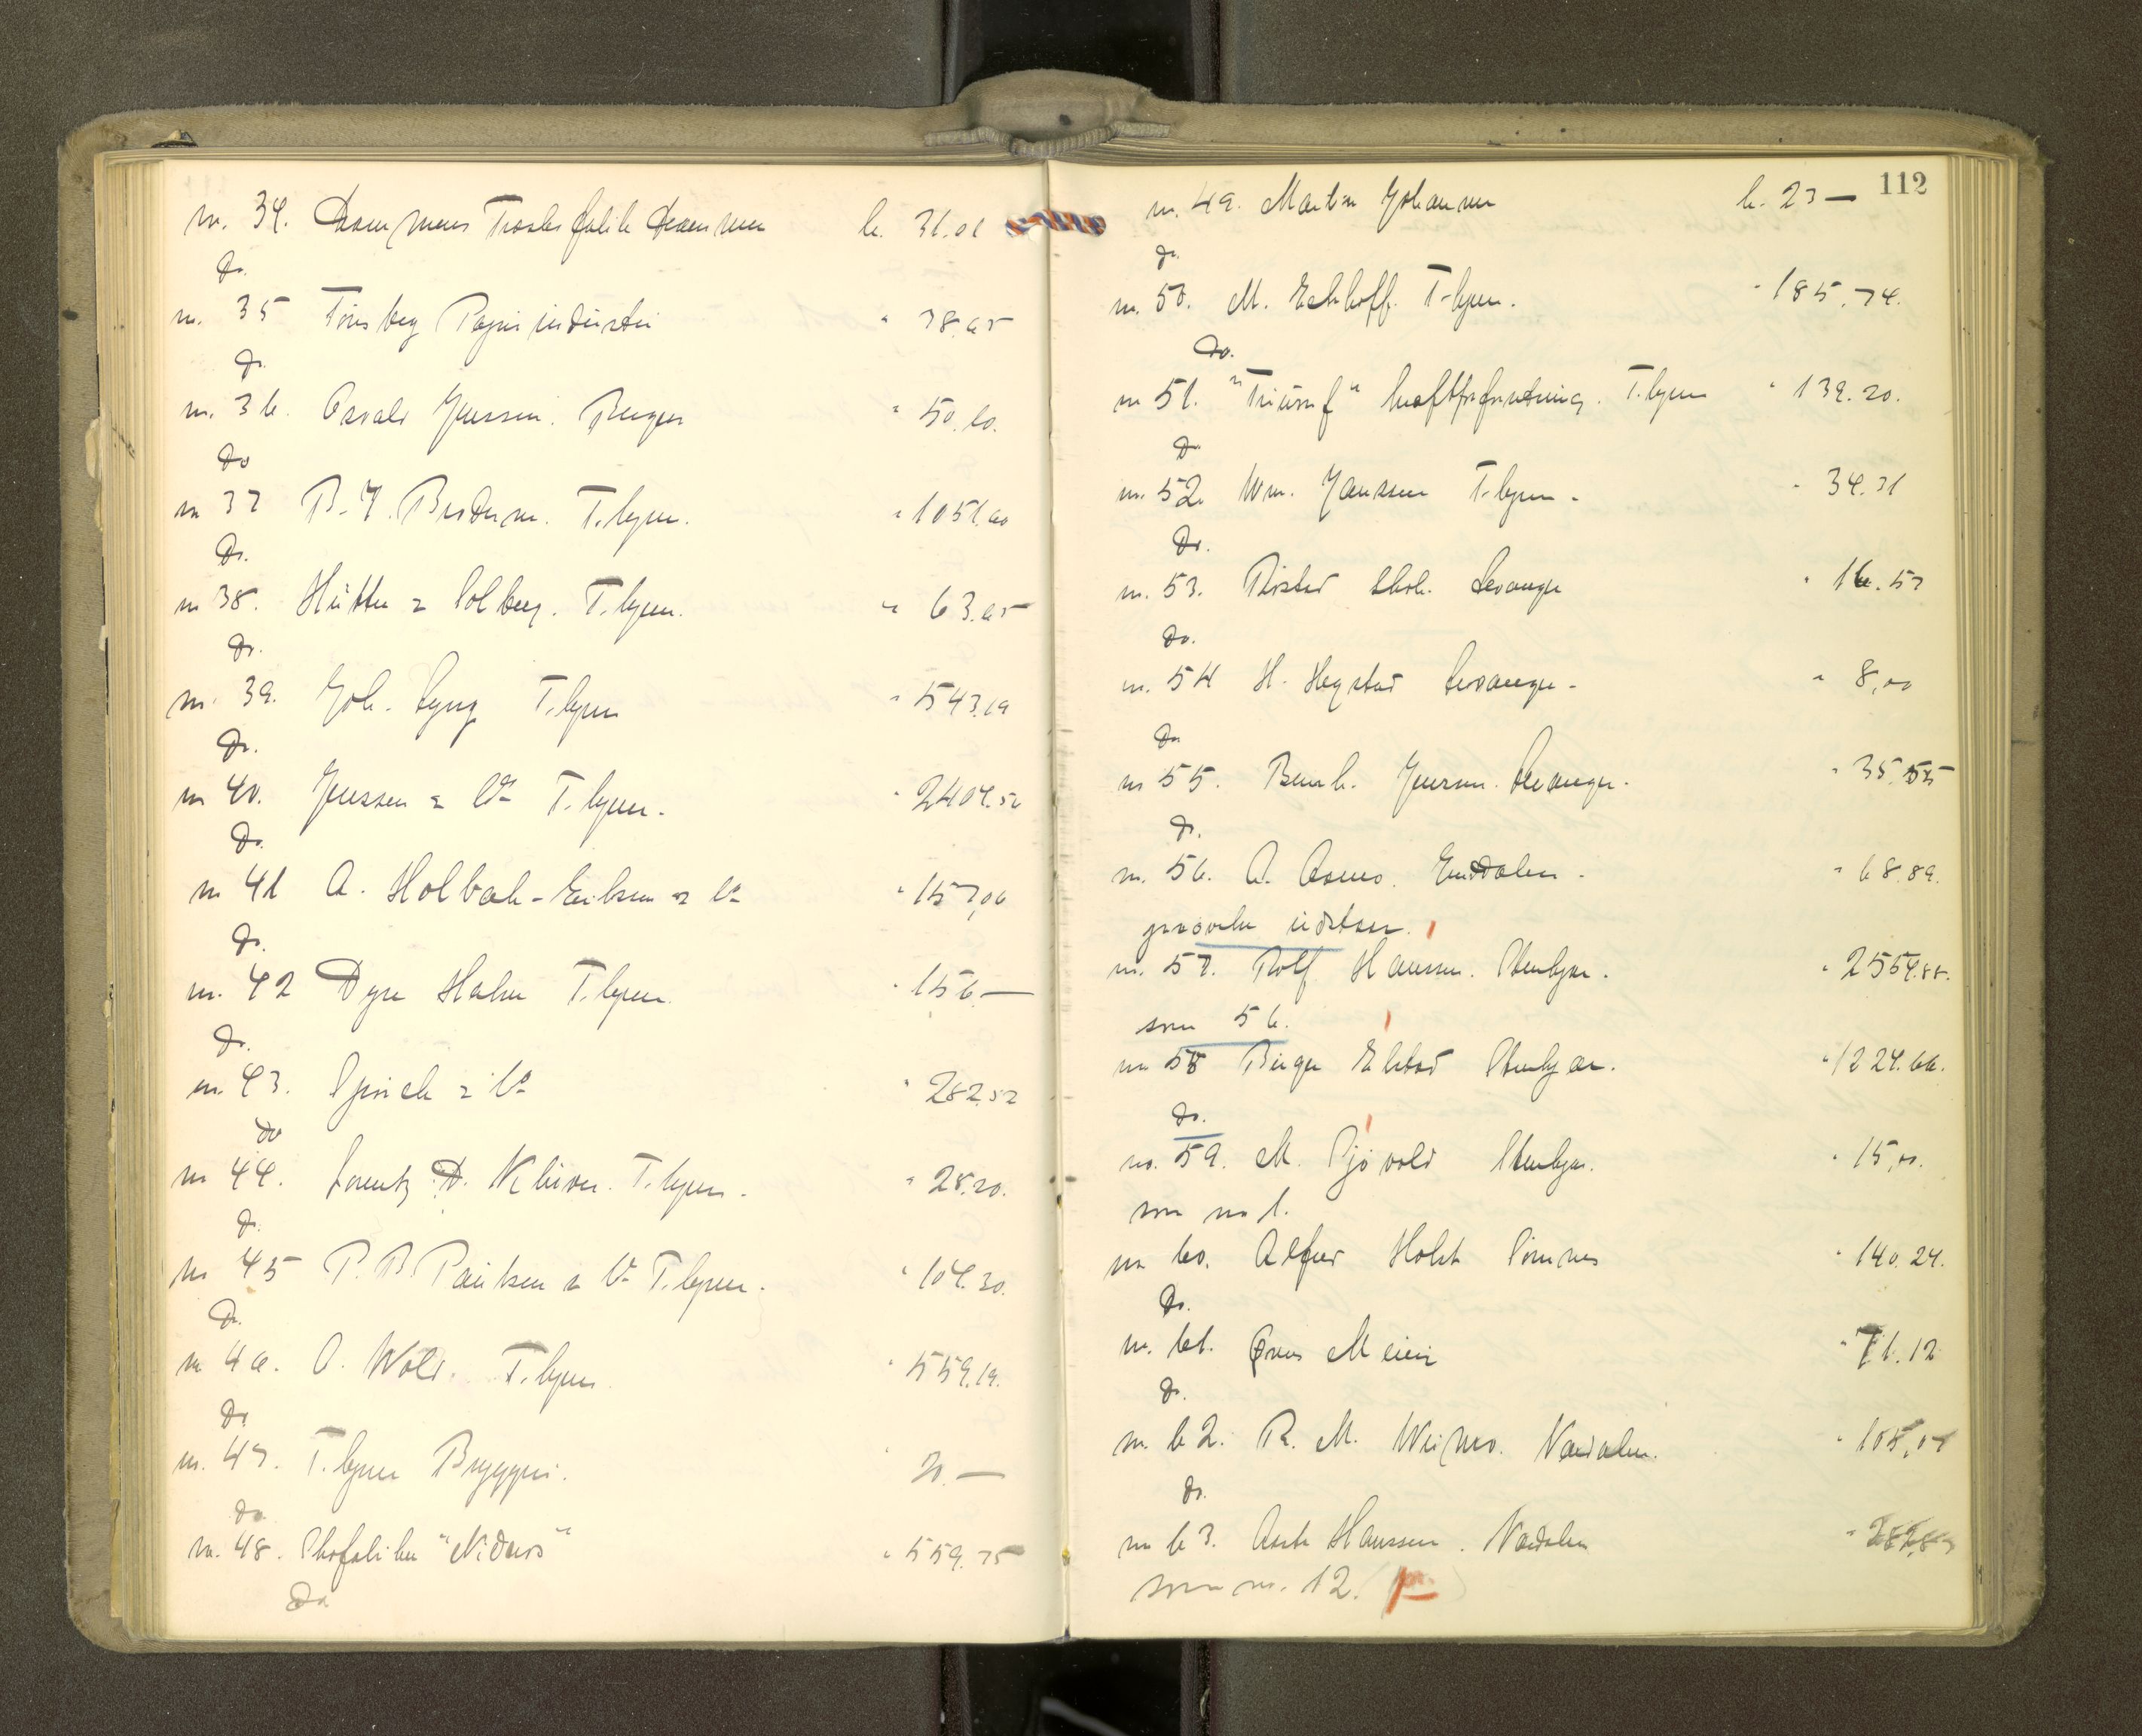 nr. 34. Drammens Trosles fabrik Drammen kr. 31.01
Do.
nr. 35 Tønsberg Papirindustri " 38.65
Do.
nr. 36. Osvald Jenssen. Bergen " 50.60.
Do
nr 37 B. F. Brodern. T.hjem. " 1051.60
Do.
nr 38. Hütter & Solberg. T.hjem. " 63.65
Do.
nr. 39. Joh. Lyng T.hjem " 543.19
Do.
nr 40. Jenssen & Co T.hjem. " 2404.52
Do.
nr 41 A. Holbæk-Eriksen & Co " 157,06
Do.
nr. 42 Dyre Halse T.hjem. " 156.—
Do.
nr. 43. Spjrich & Co " 282.52
do
nr 44. Lorentz D. Klüver. T.hjem. " 28.20.
Do.
nr 45 P. B. Paulsen & Co T.hjem. " 104.30.
Do.
nr 46. O. Wold. T.hjem " 559.19.
Do
nr. 47. T.hjem Bryggeri. 20.—
Do
nr. 48. Skofabriken "Nidaros" " 559.75
Do
112
nr. 49. Martin Johansen kr. 23—
Do.
nr. 50. M. Eckhoff. T-hjem. " 185.74.
Do.
nr 51. "Triumf" T.hjem " 139.20.
Do
nr. 52. Wm. Janssen T.hjem. " 34.31
Do.
nr. 53. Røstad skole. Levanger " 16.53
Do.
nr. 54 H. Hegstad Levanger. " 8,00
Do
nr 55. Bernh. Jensen. Levanger. " 35.55
Do.
nr. 56. O. Aasmo. Inndalen. " 68.89.
prøvelse udstaar.
nr. 57. Rolf Hanssen. Stenkjær. " 2554.88.
som 56.
nr 58 Birger Ekstad Stenkjær. " 1224.66.
Do.
nr. 59. M. Sjøvold Stenkjær. " 15,00.
som nr 1.
nr 60. Alfred Holst Sømnes " 140.24.
Do.
nr. 61. Ørens Meieri " 71.12
Do.
nr. 62. R. M. Wersmo. Værdalen. " 108,01
Do.
nr 63. Aasta Hanssen. Værdalen " 282.83
som nr. 12.